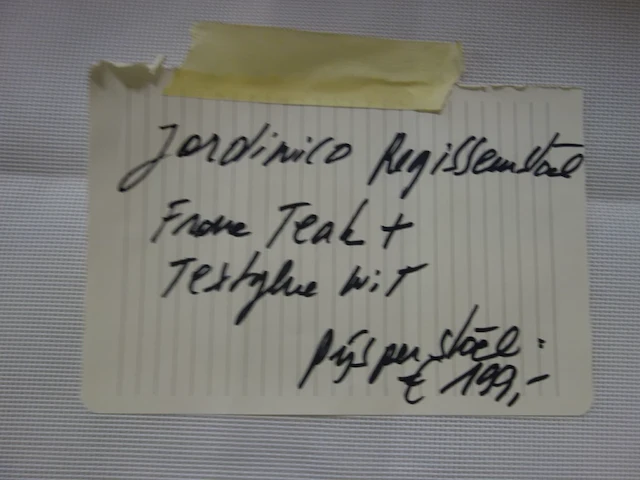 Jardinico Regisseurstoel
Frame Teak +
Textylene wit
Prijs per stoel:
€ 199,-